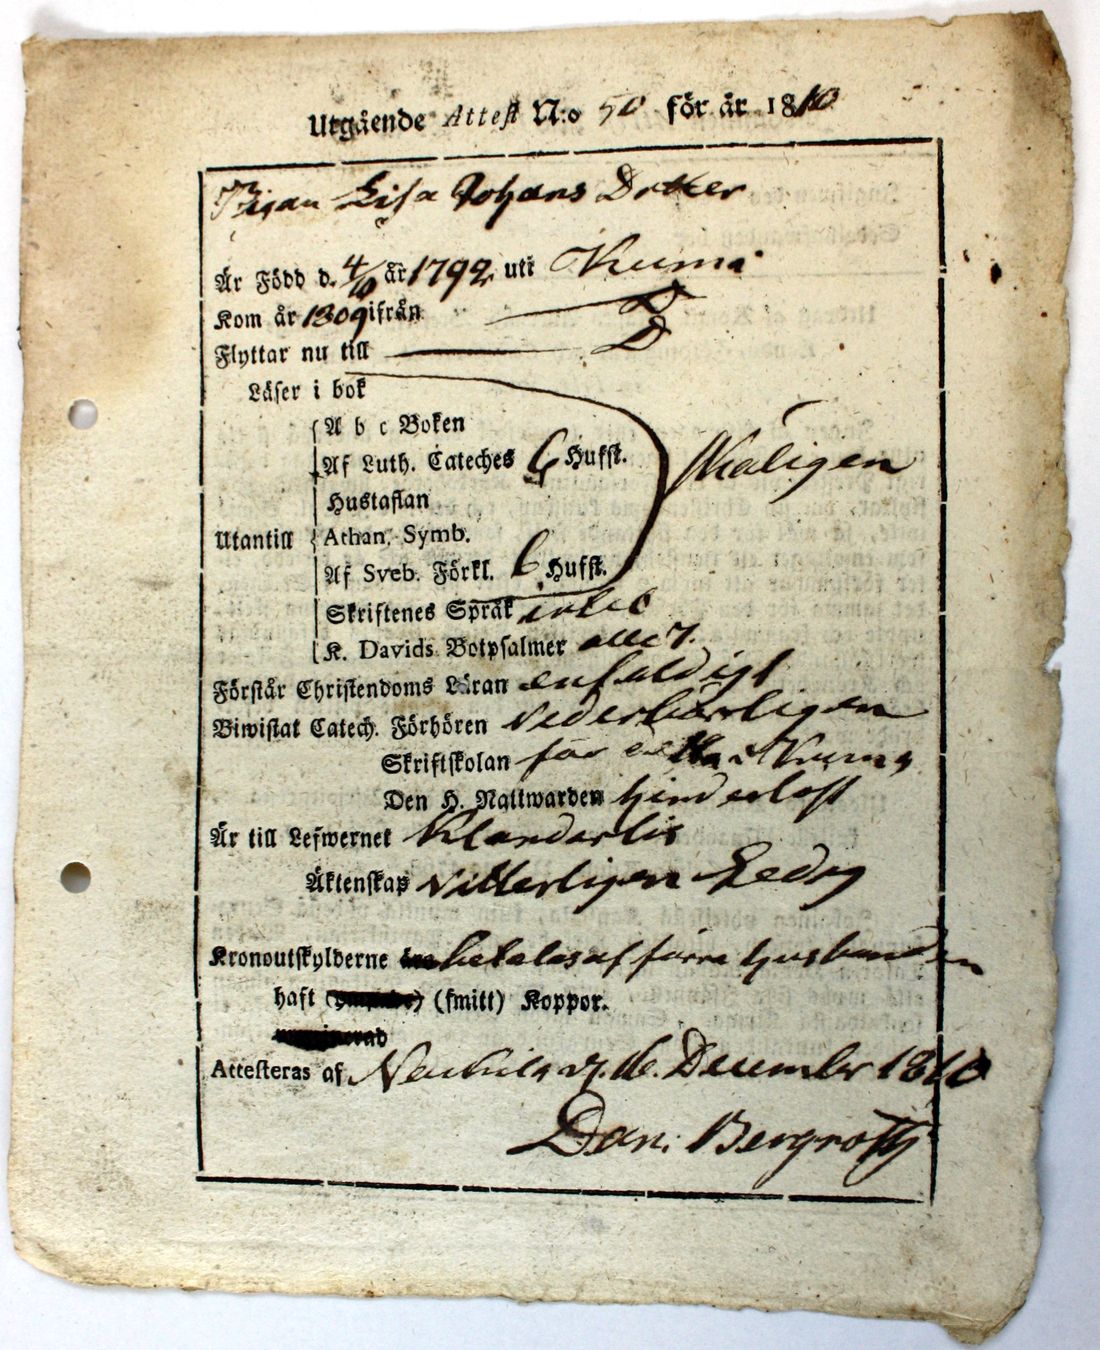 Utgående Attest N:o 50 för år 1810
Pigan Lisa Johans Dotter
Är Född d. 4/10 år 1792 uti Kumo
Kom år 1809 ifrån D
Flyttar nu till D
Läser i bok
A b c Boken
Af Luth. Cateches 6 Hufst.
Skäligen
Hustaflan
Utantill
Athan. Symb.
Af Sveb. Förkl. 6 Hufst.
Skriftenes Språk
K. Davids Botpsalmer alle 7.
Förstår Christendoms Läran enfaldigt
Biwistat Catech. Förhören vederbörligen
Skriftskolan för detta i Kumo
Den H. Nattwarden hinderlöst
Är till Lefwernet Klanderlös
Äktenskap vitterligen Ledig
Kronoutskylderne betalas af förra husbonden
haft (smitt) Koppor.
Attesteras af d. December 1810
Dan. Bergroth